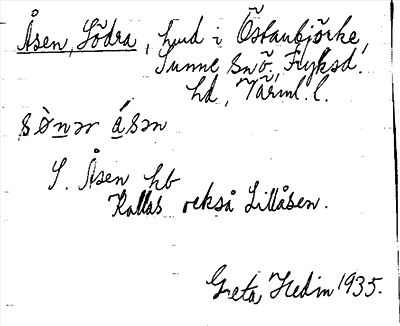 Åsen, Södra, hmd i Östanbjörke,
Sunne snö, Fryksd.
hd, Värml. l.
sò̀nər ásən
S. Åsen hb
Kallas också Lillåsen.
Greta Hedin 1935.